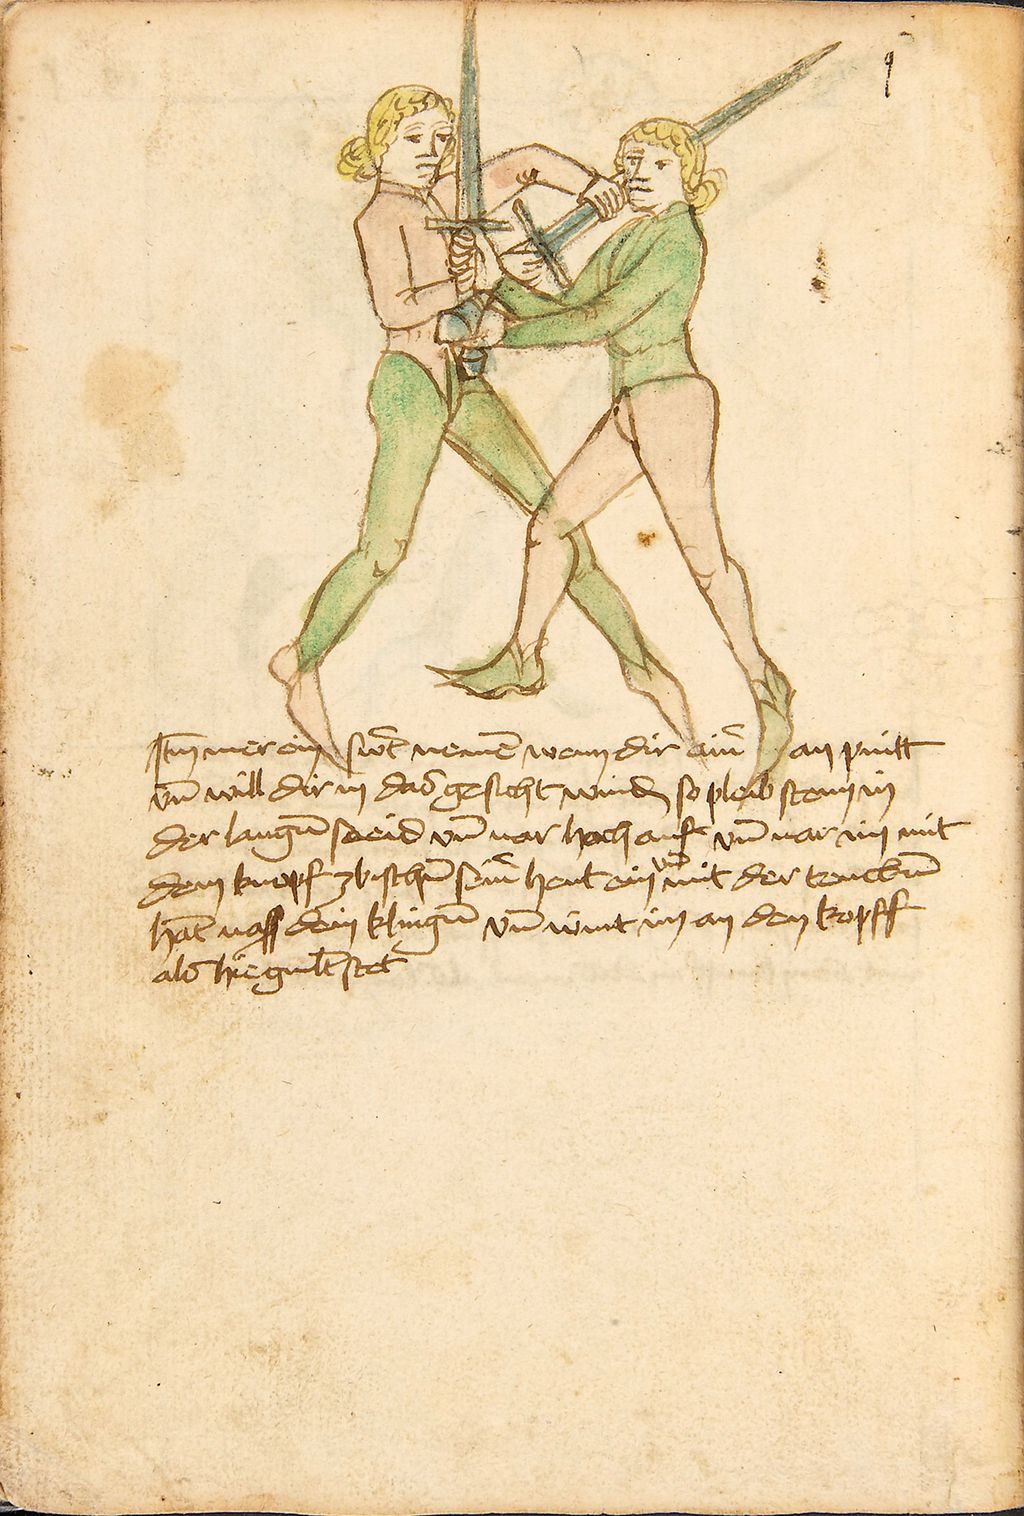 9
Itm mer ein swt nemen wenn dir ainr an pintt
vn̄ will dir in das gesicht windn̄ so pleib sten in
der langn̄ sneid vn̄ var hoch auf vn̄ var im mit
dem knopf zbischn̄ sein hent ein vn̄ mit der tenckn̄
hāt vass dein klingn̄ vn̄ wint im an den kopff
als hie gmlt stet